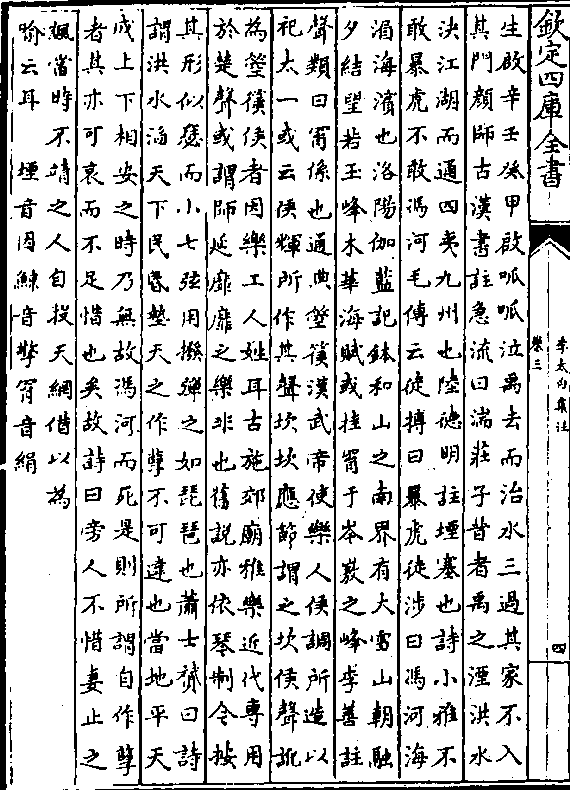 欽定四庫全書
李太白集注
卷三
四
生啟辛壬癸甲啟呱呱泣禹去而治水三過其家不入
其門顔師古漢書註急流曰湍莊子昔者禹之湮洪水
決江湖而通四夷九州也陸德明註堙塞也詩小雅不
敢暴虎不敢馮河毛傳云徒搏曰暴虎徒涉曰馮河海
湄海濱也洛陽伽藍記鉢和山之南界有大雪山朝融
夕結望若玉峰木華海賦或挂罥于岑嶅之峰李善註
聲類曰罥係也通典箜篌漢武帝使樂人侯調所造以
祀太一或云侯輝所作其聲坎坎應節謂之坎侯聲訛
為箜篌侯者因樂工人姓耳古施郊廟雅樂近代專用
於楚聲或謂師延靡靡之樂非也舊說亦依琴制令按
其形似瑟而小七弦用撥彈之如琵琶也蕭士贇曰詩
謂洪水滔天下民昏墊天之作孽不可違也當地平天
成上下相安之時乃無故馮河而死是則所謂自作孽
者其亦可哀而不足惜也矣故詩曰旁人不惜妻止之
諷當時不靖之人自投天網借以為
喻云耳　堙音因鯨音擎罥音絹